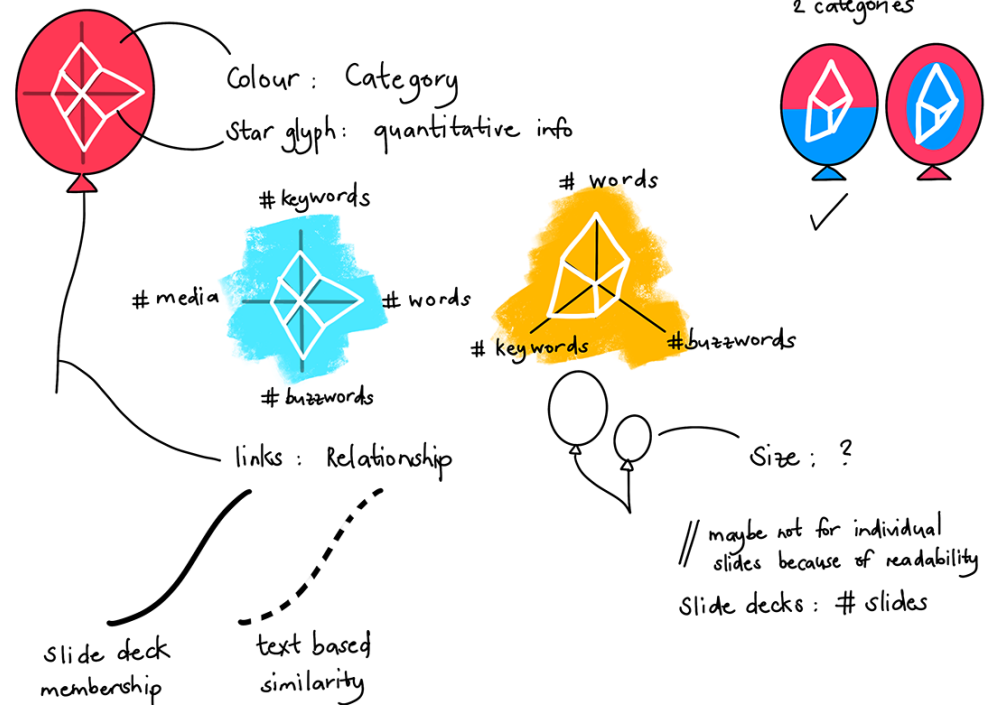 2 categories
Colour : Category
Star glyph : quantitative info
# keywords
# media
# words
# buzzwords
# words
# keywords
# buzzwords
links : Relationship
Size : ?
// maybe not for individual
slides because of readability
Slide decks : # slides
slide deck
membership
text based
similarity